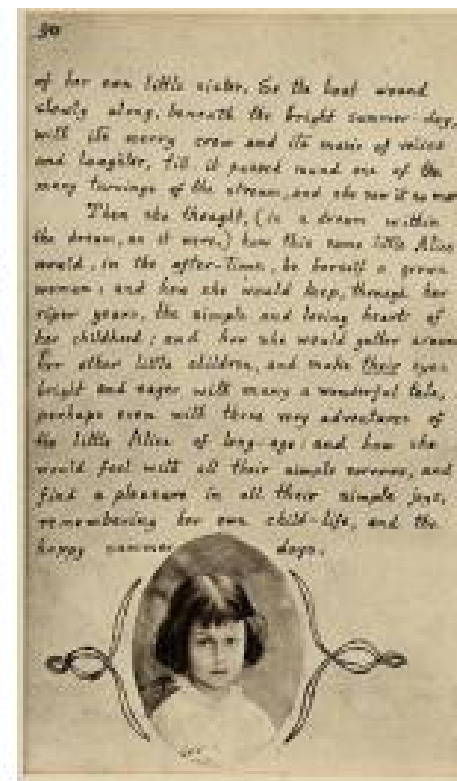 90
of her own little sister. So the boat wound
slowly along, beneath the bright summer-day,
with its merry crew and its music of voices
and laughter, till it passed round one of the
many turnings of the stream, and she saw it no more
Then she thought, (in a dream within
the dream, as it were,) how this same little Alice
would, in the after-time, be herself a grown
woman: and how she would keep, through her
riper years, the simple and loving heart of
her childhood: and how she would gather around
her other little children, and make their eyes
bright and eager with many a wonderful tale,
perhaps even with these very adventures of
the little Alice of long-ago: and how she
would feel with all their simple sorrows, and
find a pleasure in all their simple joys,
remembering her own child-life, and the
happy summer days.